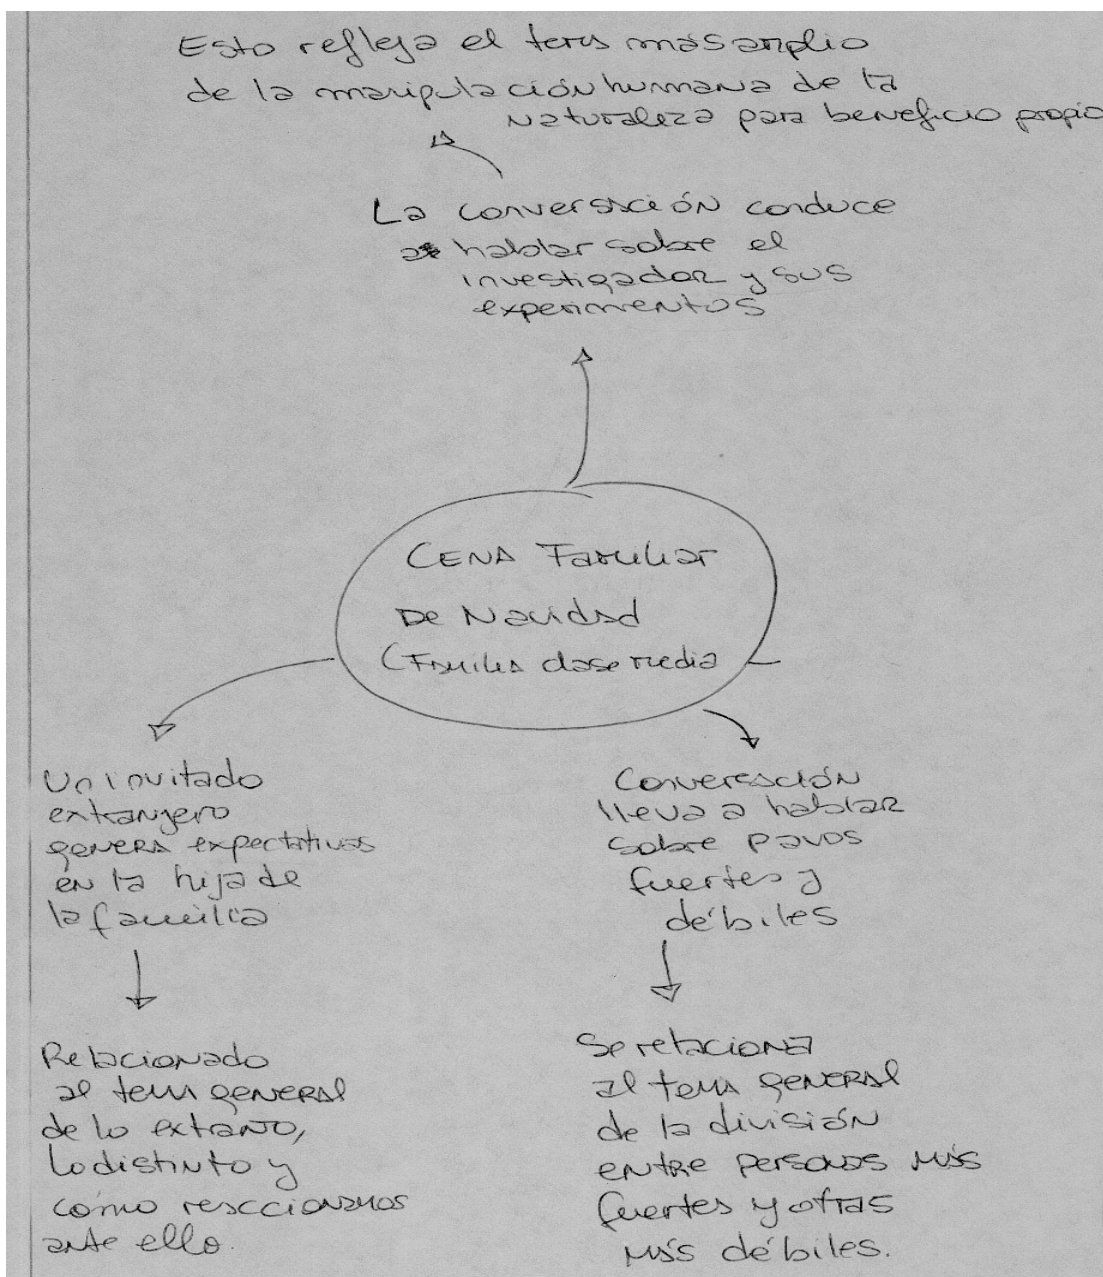 Esto refleja el tema más amplio
de la manipulación humana de la
naturaleza para beneficio propio
La conversación conduce
a hablar sobre el
investigador y sus
experimentos
CENA Familiar
De Navidad
(Familia clase media
Un invitado
extranjero
genera expectativas
en la hija de
la familia
Conversación
lleva a hablar
sobre pavos
fuertes y
débiles
Relacionado
al tema general
de lo extraño,
lo distinto y
cómo reaccionamos
ante ello.
Se relaciona
al tema general
de la división
entre personas más
fuertes y otras
más débiles.